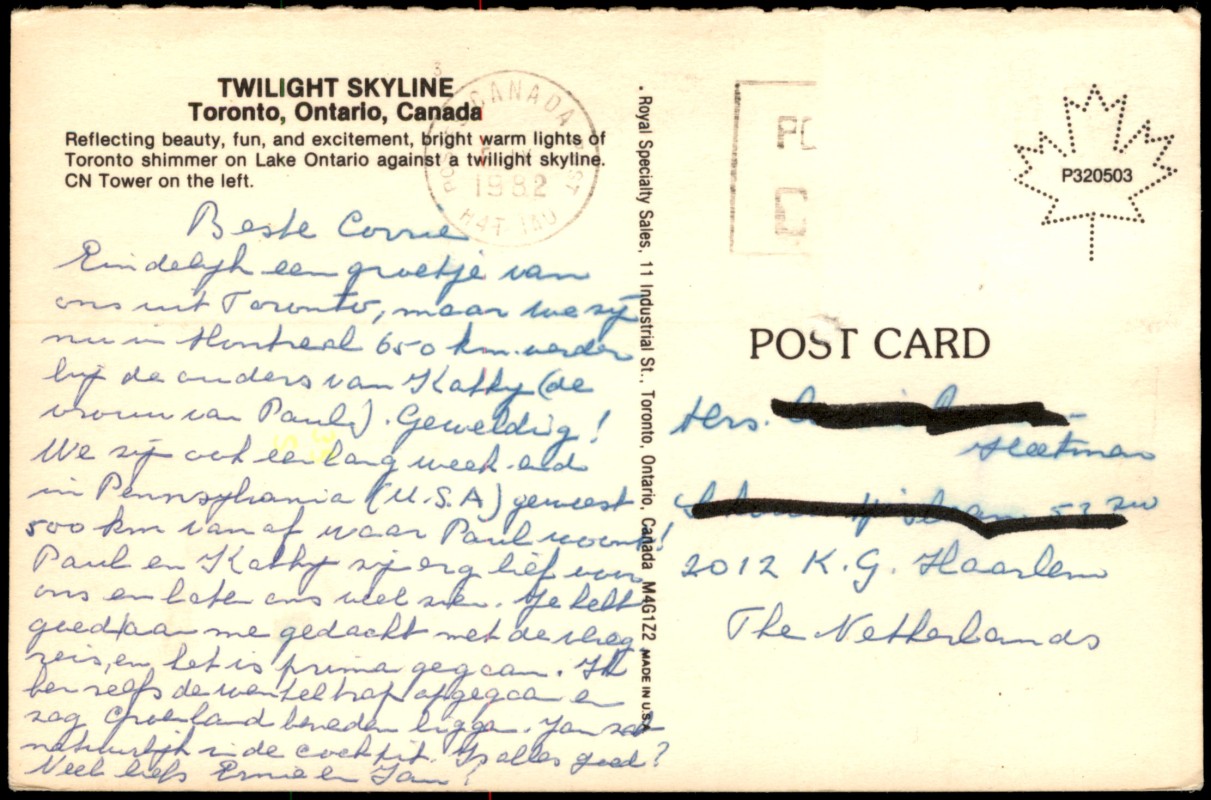 TWILIGHT SKYLINE
Toronto, Ontario, Canada
Reflecting beauty, fun, and excitement, bright warm lights of
Toronto shimmer on Lake Ontario against a twilight skyline.
CN Tower on the left.
CANADA
1982
H4T 1A0
Beste Corrie
Eindelijk een groetje van
ons uit Toronto, maar we zij
nu in Montreal 650 km. verder
bij de ouders van Kathy (de
vrouw van Paul). Geweldig!
We zij ook een lang week-end
in Pennsylvania (U.S.A) geweest
500 km vanaf waar Paul woont!
Paul en Kathy zij erg lief voor
ons en laten ons veel zien. Je hebt
goed aan me gedacht met de vlieg
reis, en het is prima gegaan. Ik
ben zelfs de wenteltrap opgegaan en
zag Groenland beneden liggen. Jan zat
natuurlijk in de cockpit. Is alles goed?
Veel liefs Ernie en Jan!
Royal Specialty Sales, 11 Industrial St., Toronto, Ontario, Canada M4G1Z2 MADE IN U.S.A.
P320503
POST CARD
Mrs.
53 zw
2012 K.G. Haarlem
The Netherlands